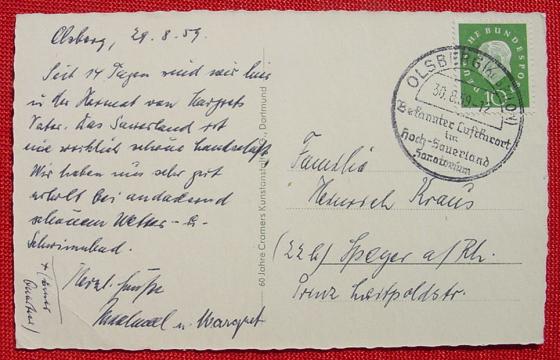 Olsberg, 29.8.59.
Seit 14 Tagen sind wir hier
in der Heimat von Margrets
Vater. Das Sauerland ist
eine wirklich schöne Landschaft.
Wir haben uns sehr gut
erholt bei andauernd
schönem Wetter
Schwimmbad.
Herzl. Grüße
Michael u. Margret
60 Jahre Cramers Kunstanstalt Dortmund
DEUTSCHE BUNDESPOST
10
OLSBERG
30.8.59-12
Bekannter Luftkurort
im
Hoch-Sauerland
Sanatorium
Familie
Heinrich Kraus
(22b) Speyer a/Rh.
Prinz Luitpoldstr.